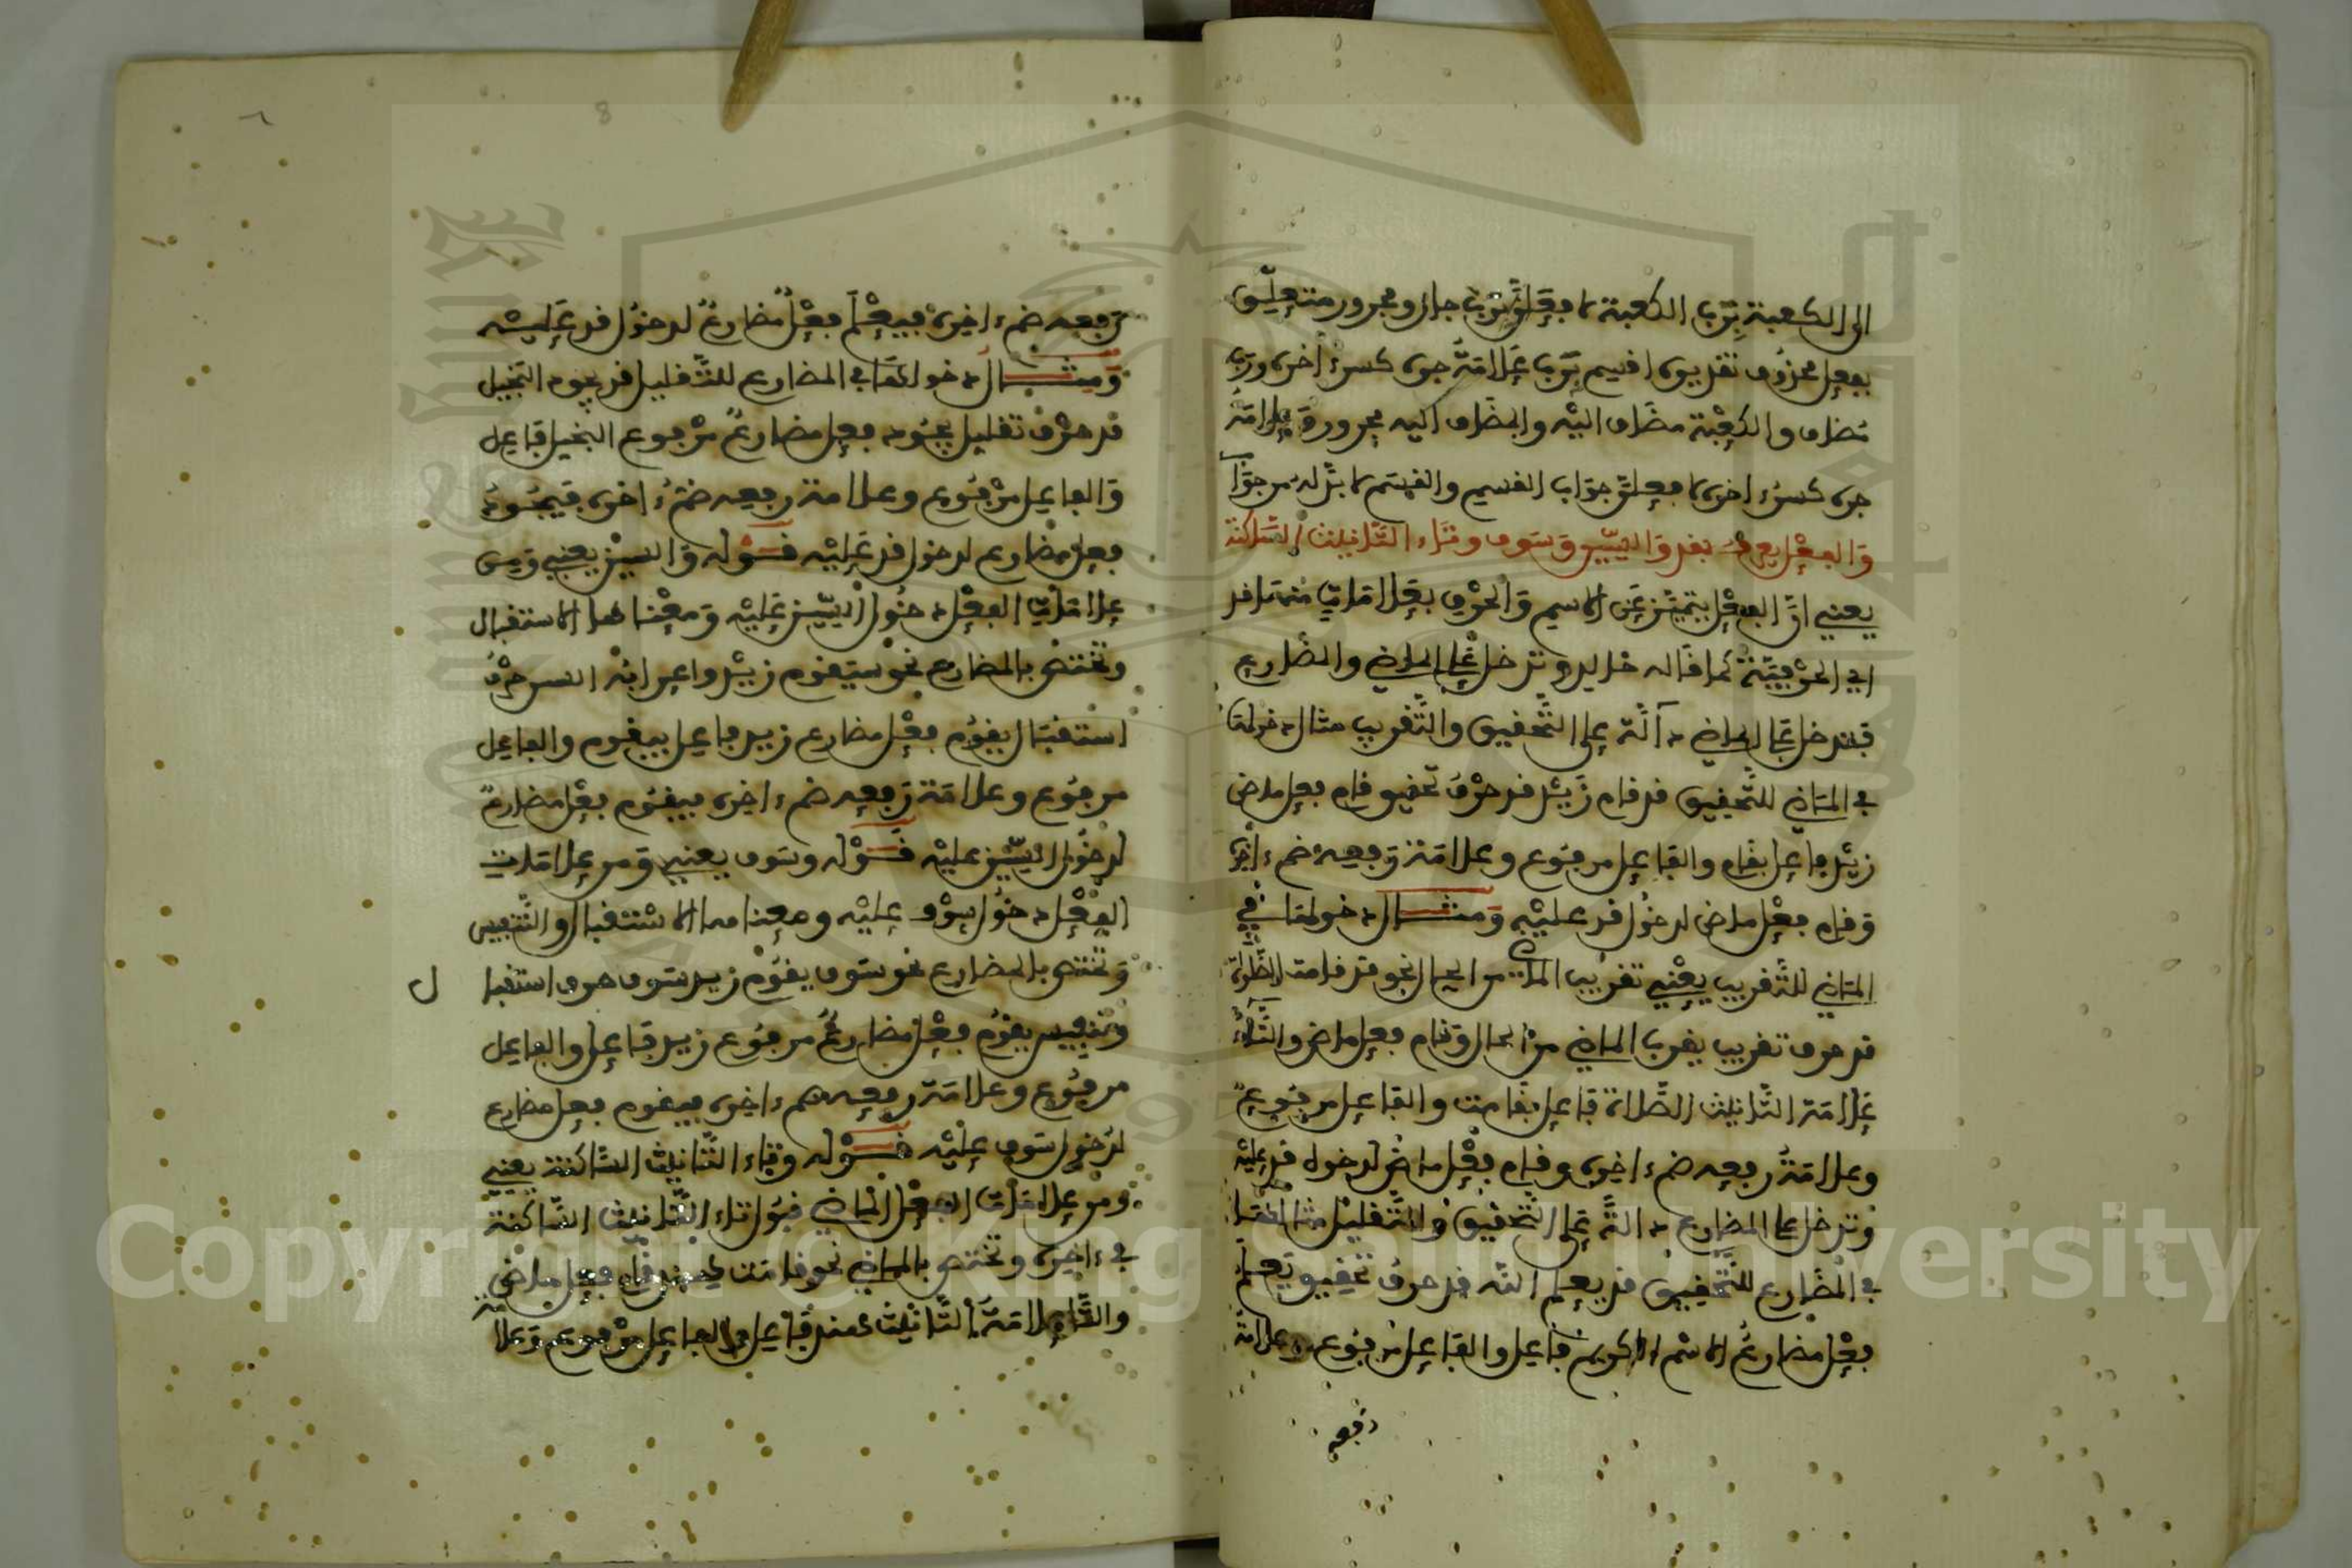 الى الكعبة بِرَبِّ الكعبة لافعلنَّ بِرَبِّ جار ومجرور متعلِّق
بفعل محذوف تقديره اقسم بِرَبِّ علامةُ جره كسرة اخره وربّ
مُضاف والكعبة مضاف اليه والمضاف اليه مجرور وعلامة
جره كسرة اخره لافعلنَّ جواب القسم والقسم لا بدَّ له من جواب
وَالفِعْل يعرف بقد وَالسِّين وَسَوف وتَاء التَّانيث السَّاكنة
يعني انَّ الفعل يتميَّز عَن الاسم وَالحرف بعلامات منها قد
اي الحرفيَّة كما قاله خالد وتدخل على الماضي والمضارع
فتدخل على الماضي دالَّة على التَّحقيق والتَّقريب مثال دخولها
في المَاضي للتَّحقيق قد قام زَيْد قد حرْفُ تحقيق قام فعل ماض
زيْد فاعل بقام والفاعل مرفوع وعلامة رَفعه ضم ءاخره
وَقام فعْل ماض لدخُول قد عليْه وَمثال دخولها في
المَاضي للتَّقريب يعْني تقريب الماضي من الحال نحو قد قامت الصَّلاة
قد حرف تقريب يقرب الماضي منْ الحال وَقام فعل ماض والتَّاء
عَلامَة التَّانيث الصَّلاة فاعل بقامت والفاعل مرفوع
وعلامةُ رفعه ضم ءاخره وقام فعْل ماض لدخول قد عليْه
وَتدخل على المضارع دالَّة على التَّحقيق والتَّقليل مثالها
في المضارع للتَّحقيق قد يعلم الله قد حرفُ تحقيق يَعلم
فعْل مضارعُ الاسْم الكريم فاعل والفاعل مرفوع وعلامة
رفعه
رَفعه ضم ءاخره فيعْلم فعْل مُضارعُ لدخُول قد عَليْه
وَمثال دخولها في المضارع للتَّقليل قد يجود البَخيل
قد حرْف تقليل يجُود فعل مضارعُ مرْفوع البخيل فَاعل
وَالفاعل مرْفُوع وعلامة رفعه ضمُّ ءاخره فَيجُود
فعلُ مضارع لدخول قد عَليْه قَوْله وَالسين يعني وَمن
علامَات الفِعْل دخُول السِّين عَليْه وَمعْناها الاستقبال
وتختص بالمضارع نحْو سَيَقوم زيْد واعرابُه السين حرْفُ
استقبَال يقوُم فعْل مضارع زيد فاعل بيقوم والفاعل
مرفوع وعلامَة رَفعه ضم ءاخره فيقوم فعْل مضارعُ
لدخُول السِّين عليْه قَوْله وسَوف يعني وَمن علامَات
الفِعْل دخُول سوْف عليْه ومعناها الاستقبال والتَّنفيس
وَتختص بالمضارع نحو سَوف يقوُم زيد سَوف حرف استقبا ل
وتنفيس يقوُم فعْل مضارعُ مرفوع زيد فَاعل والفاعل
مرفوع وعلامَة رفعه ضم ءاخره فيقوم فعل مضارع
لدُخول سَوف عليْه قَوْله وتَاء التَّانيث السَّاكنة يعني
ومنْ علامَات الفعل الماضي قبُول تَاء التَّانيث السَّاكنة
في ءاخره وتختص بالماضي نحو قامت هند قام فعل ماض
والتَّاء علامَة التَّانيث هند فَاعل والفاعل مرْفوع وَعلامة